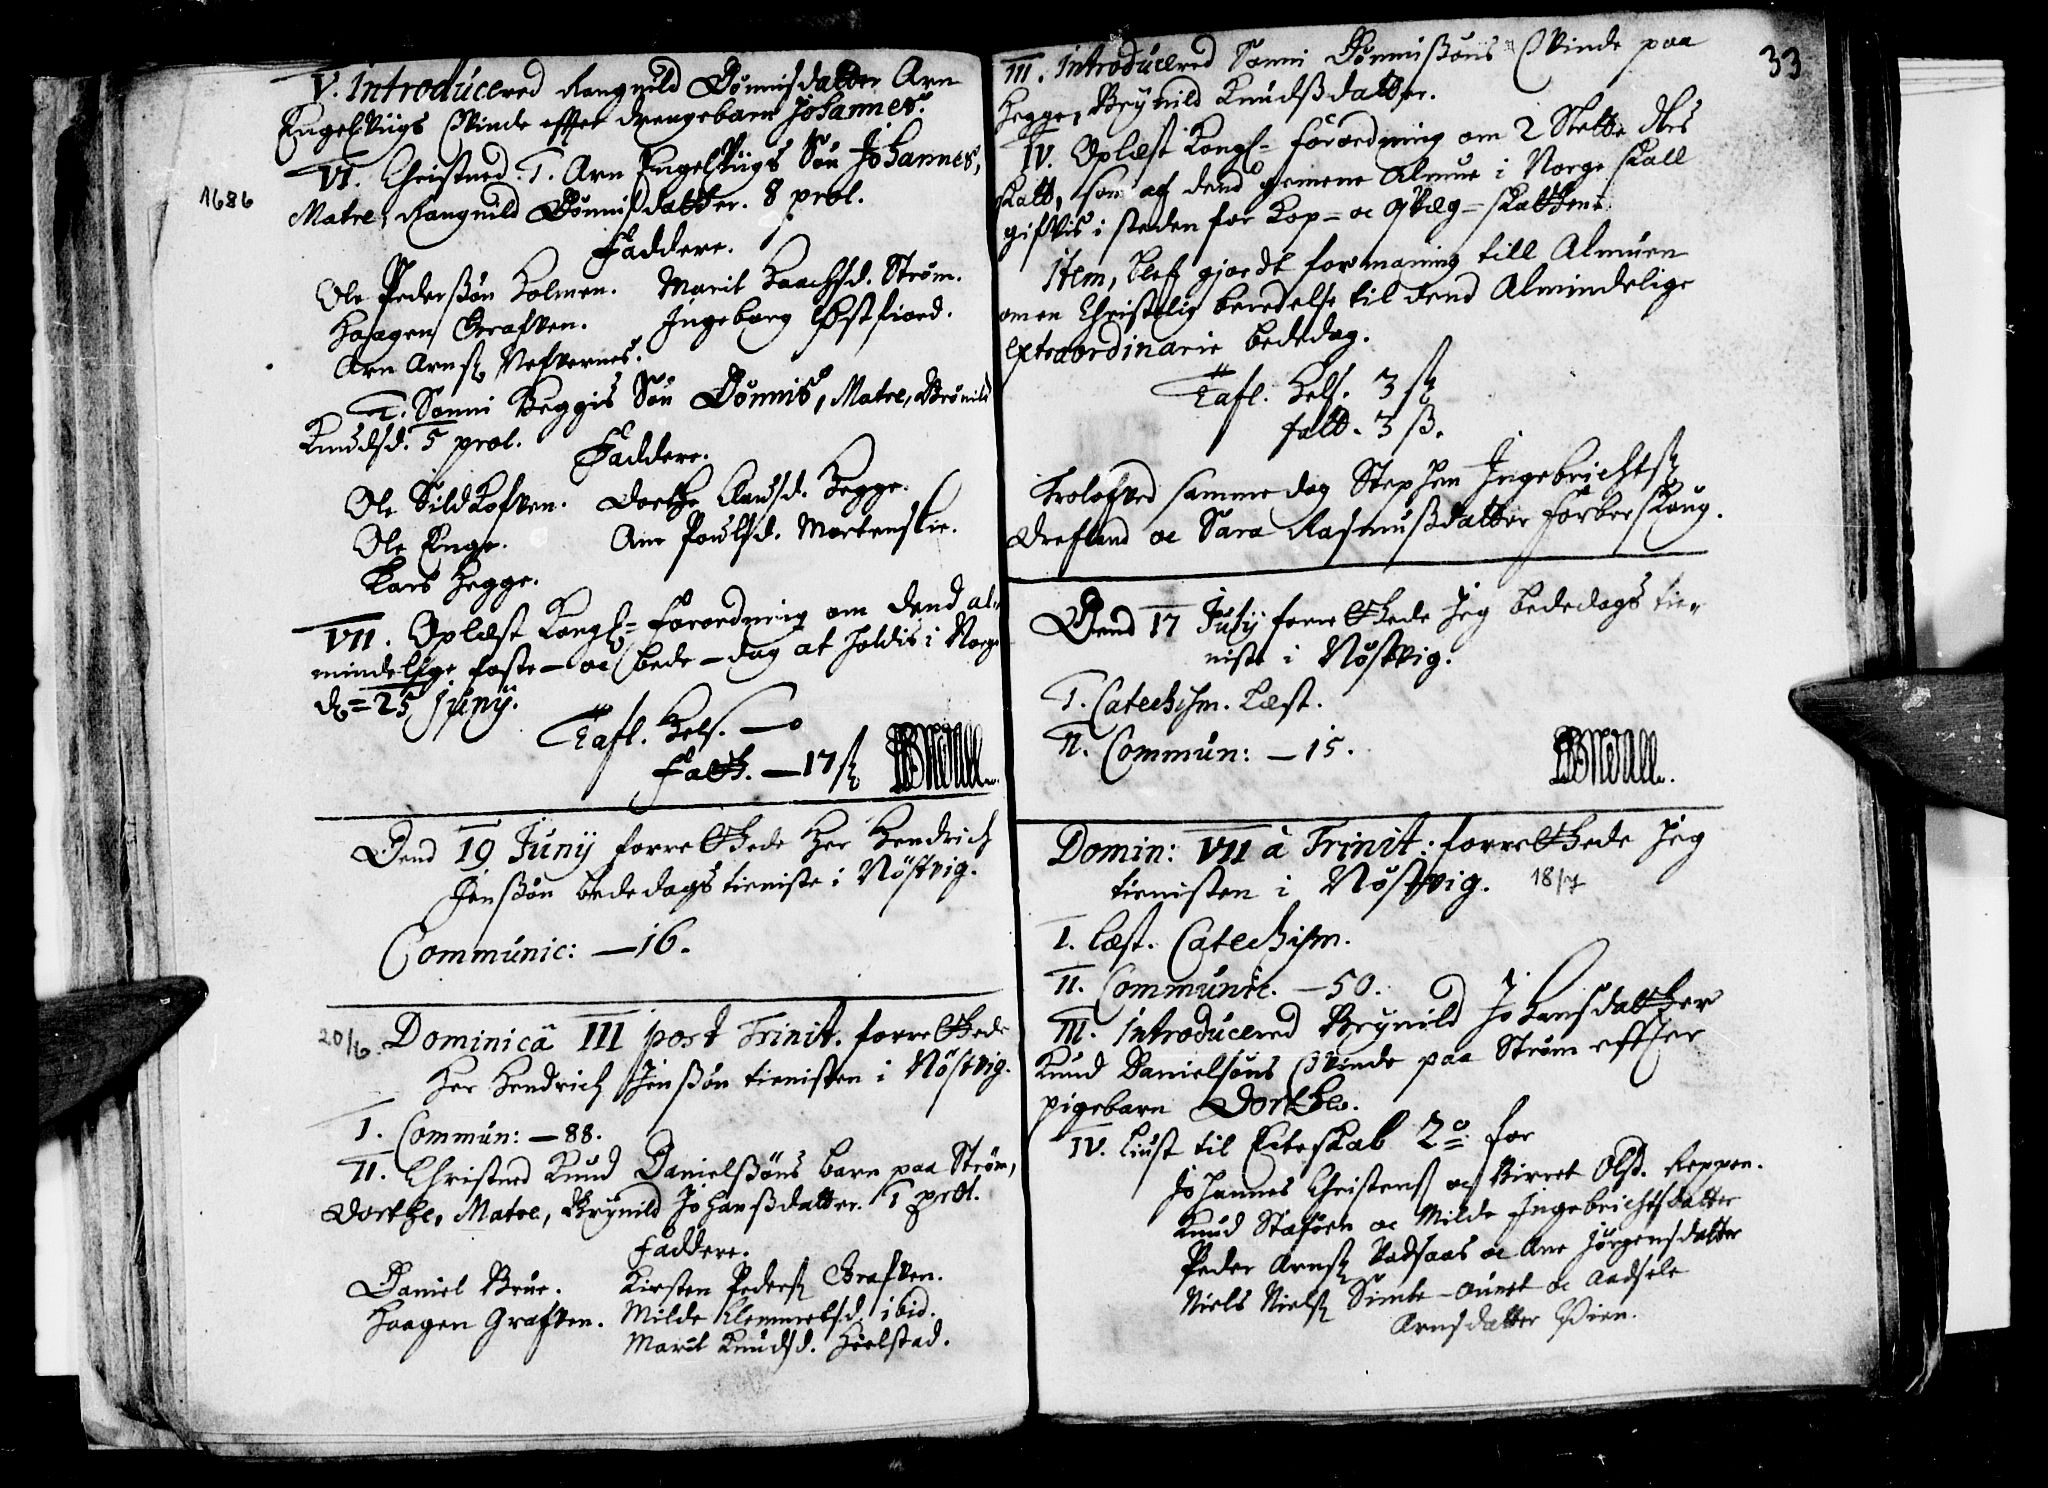 V. Introducered Rangnild Dønnisdatter Arn
Engelsviigs Qvinde effter drengebarn Johannes.
1686
VI. Christned. I. Arn Engelsviigs Søn Johannes,
Matre, Rangnild Dønnisdatter. 8 prol.
Faddere.
Ole Pederssøn Holmen. Marit Haachsd. Strøm.
Haagen Grafven. Ingeborg Østfiord.
Arn Arns. Nefvernes.
2. Sønni Heggis Søn Dønnis, Matre, Brønild
Knudsd. 5 prol.
Faddere.
Ole Sildhofven. Dorthe Clausd. Hegge.
Ole Enge. Ane Poulsd. Mortenslie.
Lars Hegge.
VII. Oplæst Kongl= Forordning om dend al-
mindelige faste- oc bede-dag at holdis i Norge
d= 25 Junij.
Tafl. Hels. —0
Fatt. —17 s
Dend 19 Junij forrettede Her Hendrich
Jenssøn bededags tieniste i Nöstvig.
Communic: —16.
20/6. Dominicâ III post Trinit. forrettede
Her Hendrich Jenssøn tienisten i Nöstvig.
I. Commun: —88.
II. Christned Knud Danielssøns barn paa Strøm,
Dorthe, Matre, Brynild Johanssdatter. 1 prol.
Faddere.
Daniel Brue. Kirsten Peders Grafven.
Haagen Grafven. Milde Klemmetsd. ibid.
Marit Knudsd. Hielstad.
33
III. Introducered Sønni Dønnissøns Qvinde paa
Hegge, Brynild Knudssdatter.
IV. Oplæst Kongl= forordning om 2 Slette dlrs
skatt, som af dend gemene Almue i Norge skall
gifvis i steden for Kop= oc Qvæg= skattene.
Item, blef giordt formaning till Almuen
om en Christelig beredelse til dend Almindelige
extraordinarie bededag.
Tafl. Hels. 3 s
fatt. 3 ß.
Trolofved samme dag Stephen Ingebrichts
Drefland oc Sara Rasmussdatter Forberskoug.
Dend 17 Julij forrettede Jeg bededags tie-
niste i Nöstvig.
I. Catechism. Læst.
II. Commun: —15.
Domin: VII à Trinit: forrettede Jeg
tienisten i Nöstvig. 18/7
I. læst. Catechism.
II. Communic. —50.
III. Introducered Brynild Johansdatter
Knud Danielsøns Qvinde paa Strøm effter
pigebarn Dorthe.
IV. liust til Ecteskab 2o for
Johannes Christens oc Birret Olsd. Reppen.
Knud Stasøen oc Milde Ingebrichtsdatter
Peder Arns Vadsaas oc Ane Jørgensdatter
Niels Niels Simle-aunet oc Aadsele
Arnsdatter Vien.